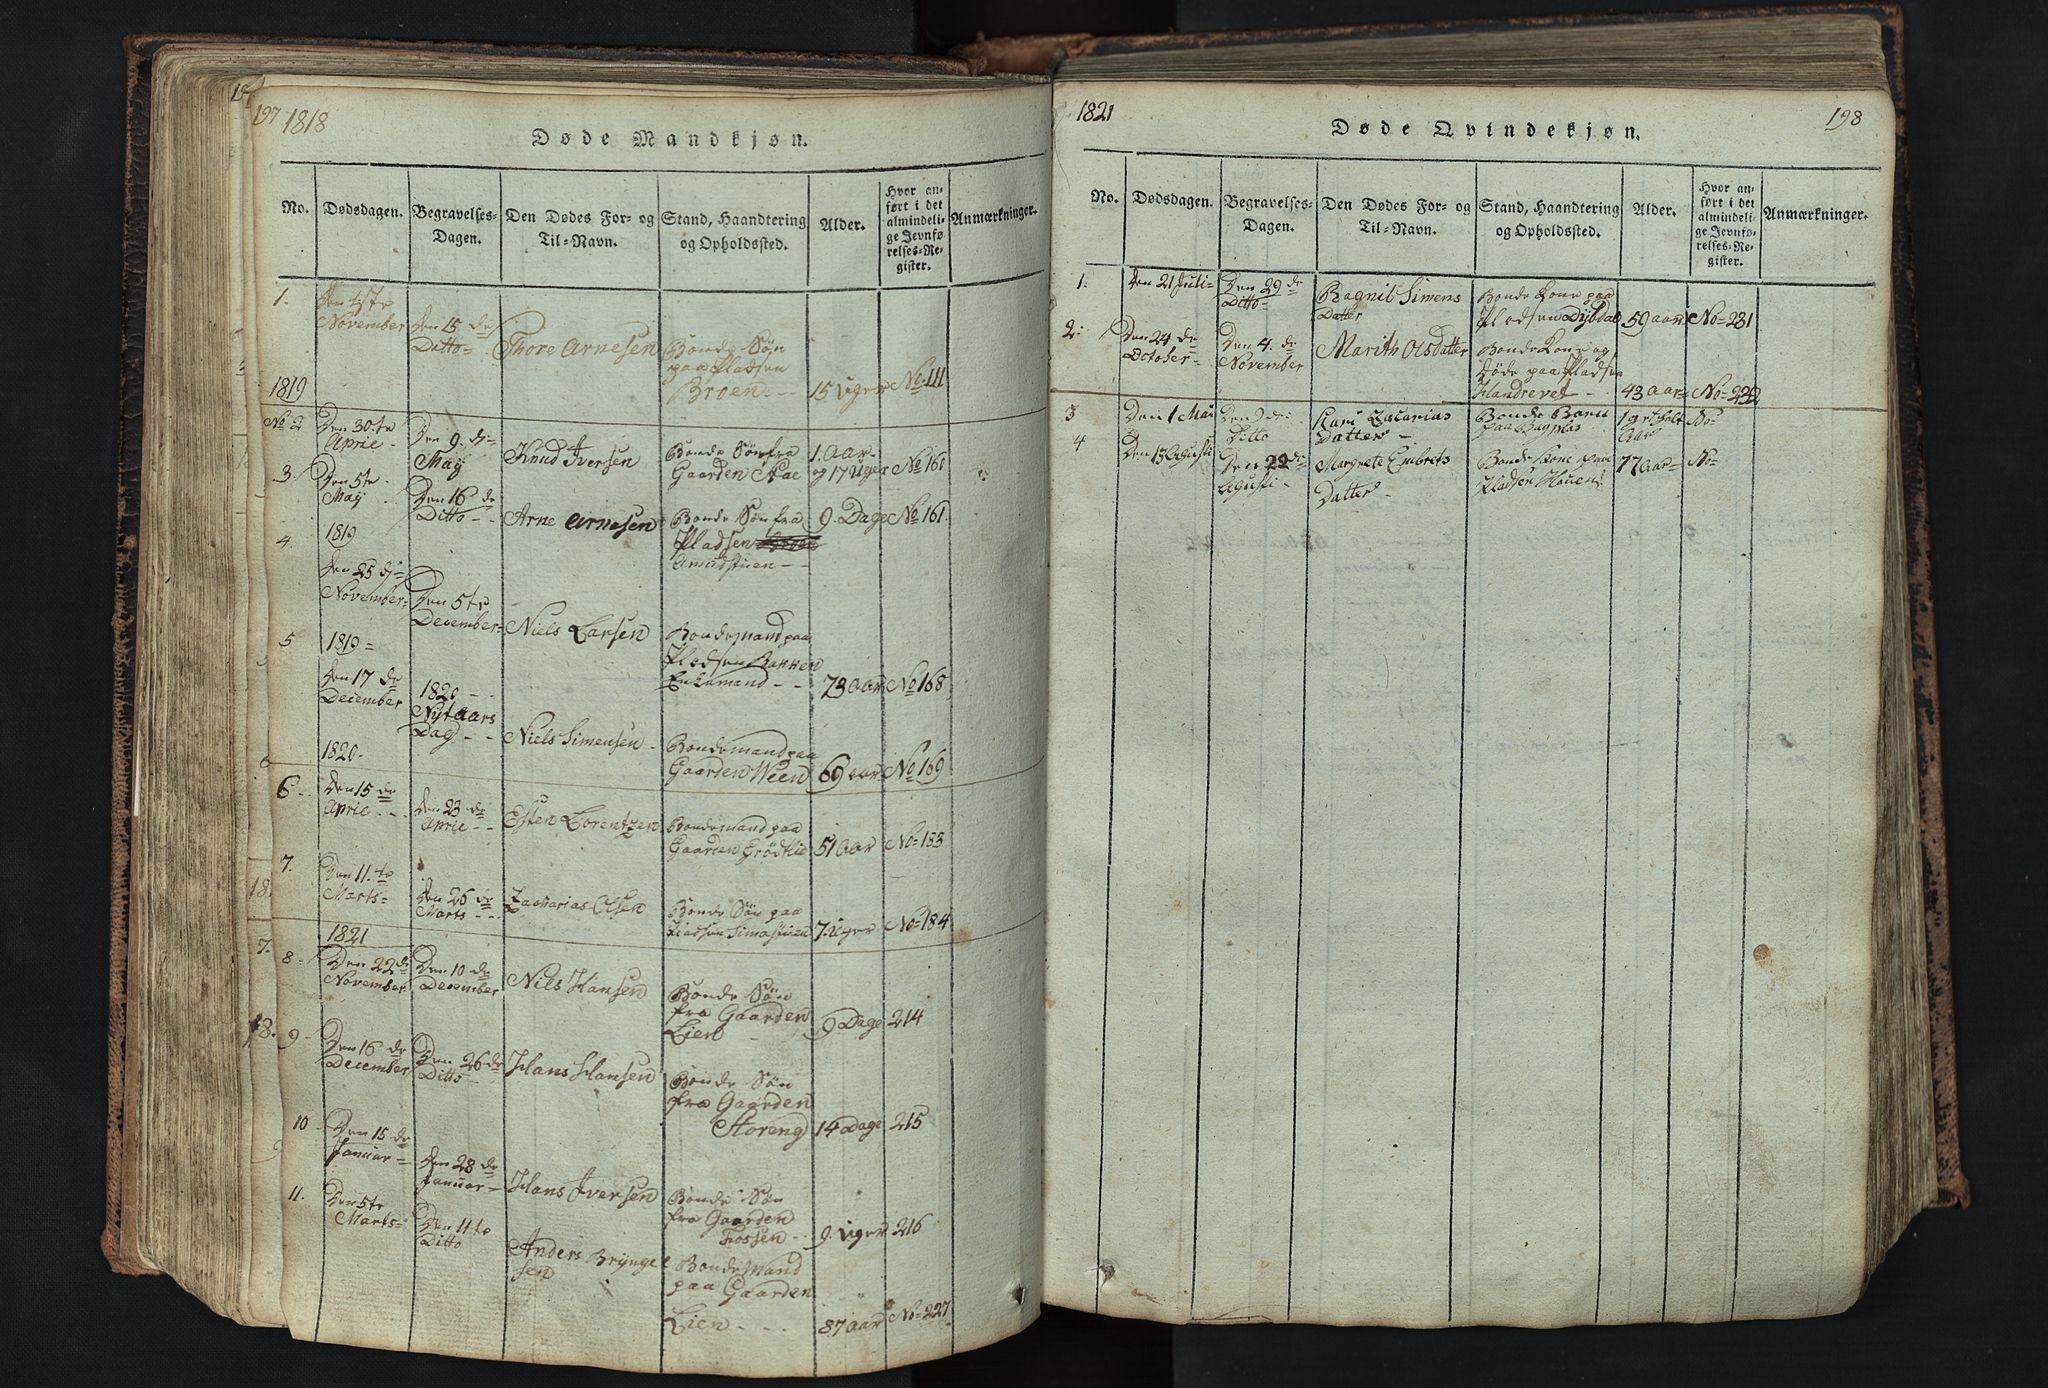 197 1818
Døde Mandkjøn.
No.
Dødsdagen.
Begravelses-
Dagen.
Den Dødes For- og
Til-Navn.
Stand, Haandtering
og Opholdssted.
Alder.
Hvor an-
ført i det
almindeli-
ge Jevnfø-
relses-Re-
gister.
Anmærkninger.
1.
November
Den 15 de
Ditto-
Thore Arnesen
Bonde Søn
paa Pladsen
Broen
15 Uger No. 111
1819
No 2
Den 30.te
April
Den 9. di
May
Knud Iversen
Bonde Søn fra
Gaarden Aae
1. Aar
og 17 Uger
No 160
3.
Den 5te
May
Den 16 de
Ditto
Arne Arnesen
Bonde Søn fra
Pladsen
Amudstuen
9. Dage No 161
4.
1819
Den 25 di
November
Den 5te
December
Niels Larsen
Bondemand paa
Pladsen Bakken
Enkemand
73 Aar No 168
5
1819
Den 17 de
December
1820
Nyt aars
Dag
Niels Simensen
Bondemand paa
Gaarden Ween
69 aar No 169
1820
6
Den 15 de
April
Den 23 de
April
Esten Lorentzen
Bondemand paa
Gaarden
51 Aar No 183
7.
Den 11.te
Marts
Den 26 de
Marts
Zacharias Olsen
Bonde Søn paa
Pladsen Simastuen
7. Uger No 184
1821
8
Den 22 di
November
Den 10 de
December
Nils Hansen
Bonde Søn
fra Gaarden
Lien
9 Dage 214
9
Den 16 de
December
Den 26 de
Ditto
Hans Hansen
Bonde Søn
fra Gaarden
Storeng
14 Dage 215
10
Den 15 de
Januar
Den 28 de
Januar
Hans Iversen
Bonde Søn
fra Gaarden
Fossen
9. Uger 216
11.
Den 5te
Marts
Den 11.te
Ditto
Anders Bryngel
sen
Bondemand
paa Gaarden
Lien
87 aar No 227
1821
198
Døde Qvindekjøn.
No.
Dødsdagen.
Begravelses-
Dagen.
Den Dødes For- og
Til-Navn.
Stand, Haandtering
og Opholdssted.
Alder.
Hvor an-
ført i det
almindeli-
ge Jevnfø-
relses-Re-
gister.
Anmærkninger.
1.
Den 21 Juli
Den 29 de
Ditto
Ragnil Simens
Datter
Bonde Kone paa
Pladsen Dybdal
59 aar No 231
2.
Den 24 de
October
Den 4. de
November
Marith Olsdatter
Bonde Kone og
døde paa Pladsen
43 aar
3
Den 1 Mai
Den 9 de
Ditto
Kari Zacarias
Datter
Bonde Barn
paa Bagplas
1 og et halt
Aar
No
4
Den 13 Agusti
Den 22 de
Agusti
Margrete Embrets
Datter
Bonde Kone paa
Pladsen Hauen
77 Aar No